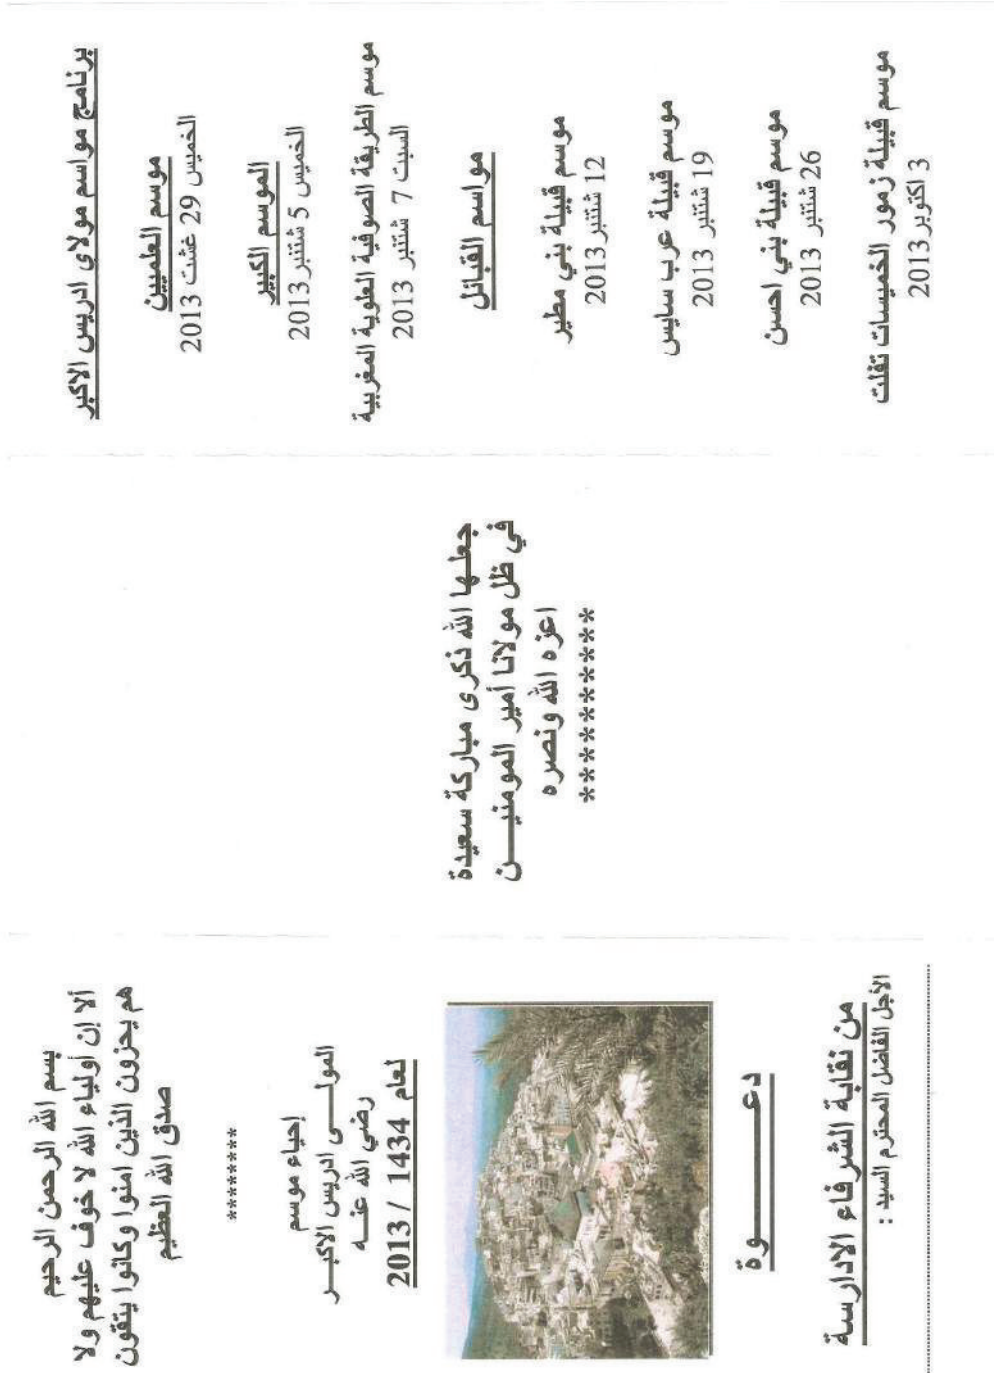 بسم الله الرحمن الرحيم
ألا إن أولياء الله لا خوف عليهم ولا
هم يحزنون الذين امنوا وكانوا يتقون
صدق الله العظيم
********
إحياء موسم
المولـــى ادريس الاكبـــر
رضي الله عنـــه
لعام 1434 / 2013
دعـــــــــوة
من نقابة الشرفاء الادارسة
الأجل الفاضل المحترم السيد :
جعلـها الله ذكرى مباركة سعيدة
في ظل مولانا أمير المومنيـــن
اعزه الله ونصره
*********
برنامج مواسم مولاي ادريس الاكبر
موسم العلميين
الخميس 29 غشت 2013
الموسم الكبير
الخميس 5 شتنبر 2013
موسم الطريقة الصوفية العلوية المغربية
السبت 7 شتنبر 2013
مواسم القبائل
موسم قبيلة بني مطير
12 شتنبر 2013
موسم قبيلة عرب سايس
19 شتنبر 2013
موسم قبيلة بني احسن
26 شتنبر 2013
موسم قبيلة زمور الخميسات تفلت
3 اكتوبر 2013